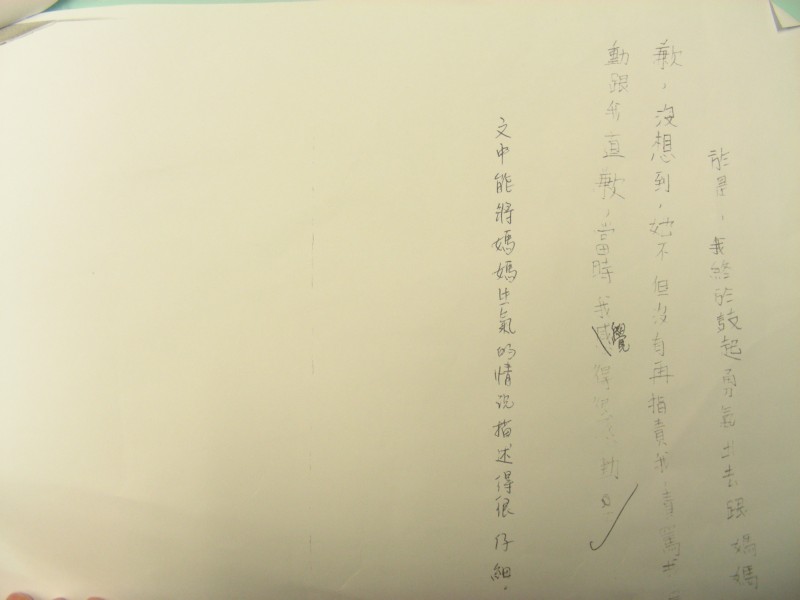 於是，我終於鼓起勇氣出去跟媽媽
歉，沒想到，她不但沒有再指責我責罵我
動跟我道歉，當時我覺得
文中能將媽媽生氣的情況描述得很仔細。